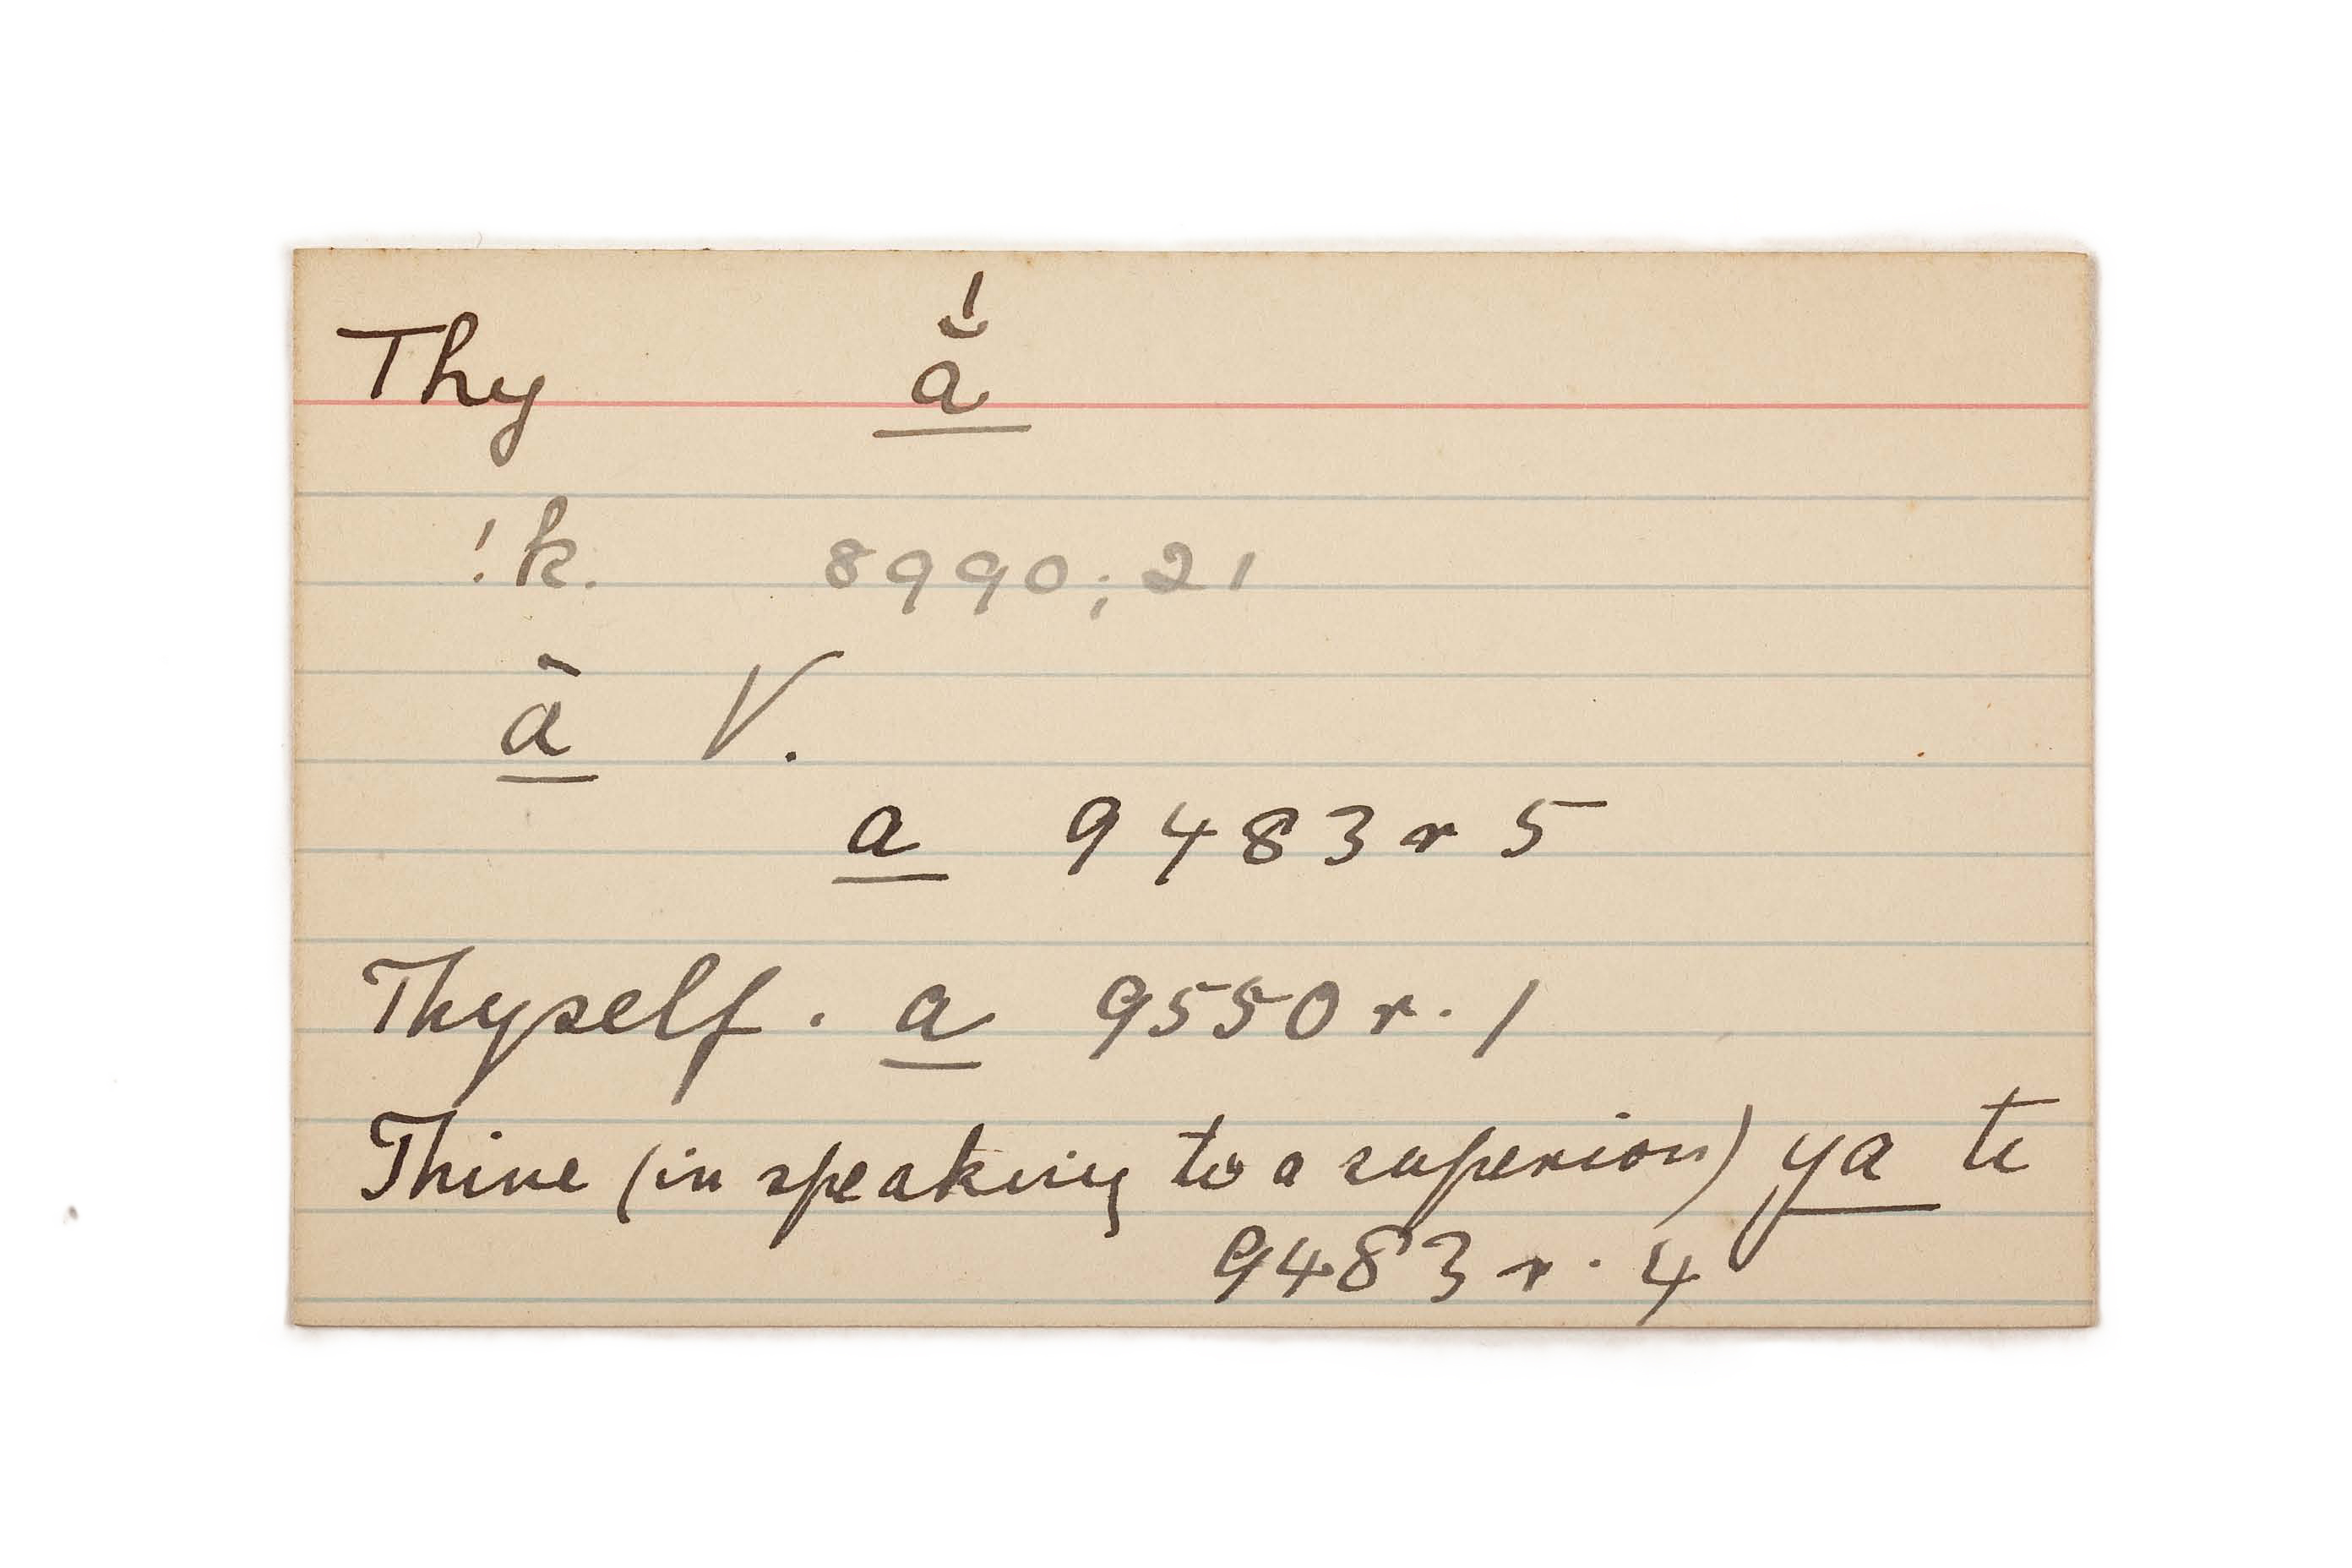 Thy ắ
!k. 8990;21
ā V.
a 9483 r 5
Thyself. a 9550 r. 1
Thine (in speaking to a superior) ya te
9483 r. 4